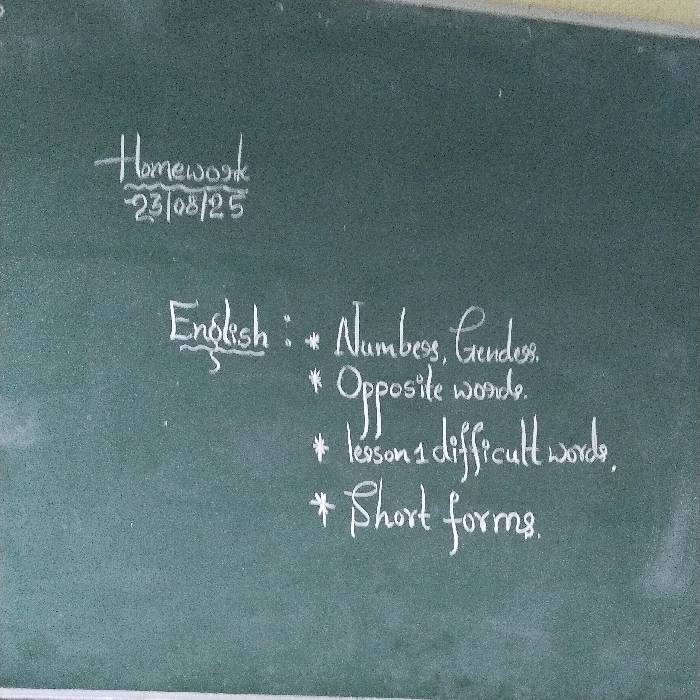 Homework
23/08/25
English : * Numbers, Genders.
* Opposite words.
* lesson 1 difficult words.
* Short forms.